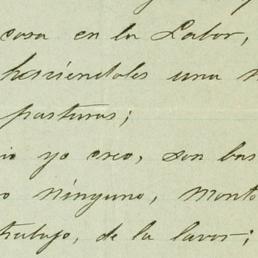 cosa en la Labor,
haciendoles una
pasturas;
yo creo, son bas
ninguno, monto
trabajo, de la lavor;